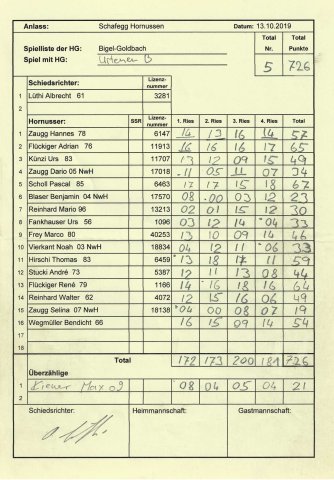 Anlass: Schafegg Hornussen Datum: 13.10.2019
Spielliste der HG: Bigel-Goldbach Total Nr. Total Punkte
Spiel mit HG: Utenen B 5 726
Schiedsrichter: Lizenz-nummer
1 Lüthi Albrecht 61 3281
2
Hornusser: SSR Lizenz-nummer 1. Ries 2. Ries 3. Ries 4. Ries Total
1 Zaugg Hannes 78 6147 14 13 16 14 57
2 Flückiger Adrian 76 11913 16 16 16 17 65
3 Künzi Urs 83 11707 13 12 09 15 49
4 Zaugg Dario 05 NwH 17018 11 05 11 07 34
5 Scholl Pascal 85 6463 17 17 15 18 67
6 Blaser Benjamin 04 NwH 17570 08 00 03 12 23
7 Reinhard Mario 96 13213 02 01 15 12 30
8 Fankhauser Urs 56 1096 03 12 14 04 33
9 Frey Marco 80 40253 13 10 09 14 46
10 Vierkant Noah 03 NwH 18834 04 12 11 06 33
11 Hirschi Thomas 83 6459 13 18 17 11 59
12 Stucki André 73 5387 12 11 13 08 44
13 Flückiger René 79 1166 14 16 18 16 64
14 Reinhard Walter 62 4072 12 15 16 06 49
15 Zaugg Selina 07 NwH 18138 04 00 08 07 19
16 Wegmüller Bendicht 66 16 15 09 14 54
17
18
Total 172 173 200 181 726
Überzählige
1 Kiener Max 09 08 04 05 04 21
2
Schiedsrichter: Heimmannschaft: Gastmannschaft: